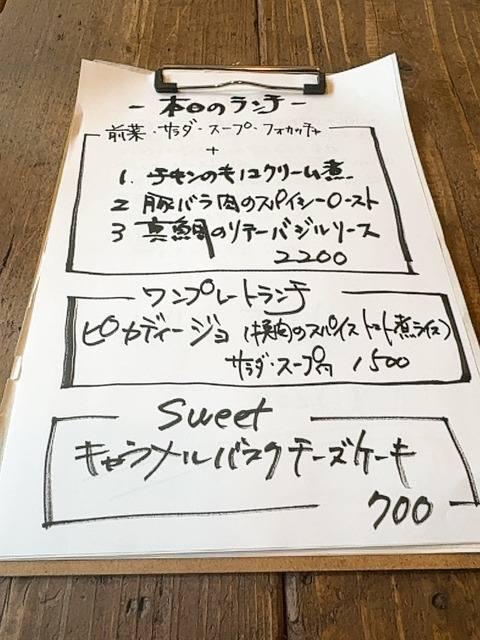 - 本日のランチ -
前菜・サラダ・スープ・フォカッチャ
+
1. チキンのキノコクリーム煮
2 豚バラ肉のスパイシーロースト
3 真鯛のソテーバジルソース
2200
ワンプレートランチ
ピカディージョ (挽肉のスパイストマト煮ライス)
サラダ・スープ付 1500
Sweet
キャラメルバスクチーズケーキ
700